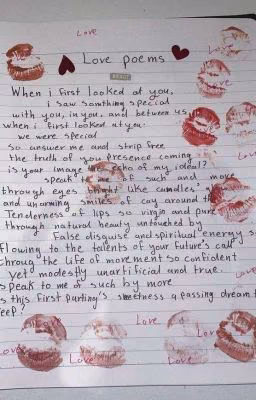 Love
Love poems
READY
When i first looked at you,
i saw something special
with you, in you, and between us
when i first looked at you.
we were special
so answer me and strip free
the truth of you presence coming
is your image the echo of my ideal?
speak to me of such and more
through eyes bright like candles
and unarming smiles of coy around the
Tenderness of lips so virgin and pure
through natural beauty untouched by
False disguise and spiritual energy so
Flowing to the talents of your future's call
throug the life of movement so confident
yet modestly unartificial and true.
speak to me of such by more
is this first parting's sweetness a passing dream to
keep?
Love
Love
Love
Love
Love
Love
Love
Love